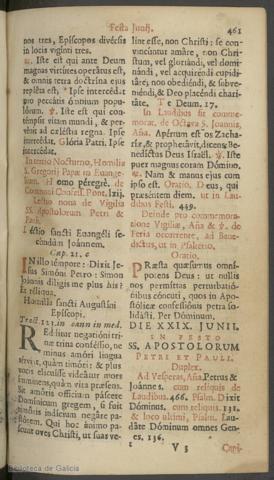 Festa Junij.
461
nos tres, Episcopos divérsis
in locis viginti tres.
℣. Iste est qui ante Deum
magnas virtútes operátus est,
& omnis terra doctrína ejus
repléta est, * Ipse intercédat
pro peccátis ómnium populórum.
℣. Iste est qui contémpsit
vitam mundi, &
ad cæléstia regna. Ipse
intercédat. Glória Patri. Ipse
intercédat.
In tertio Nocturno, Homilia
S. Gregorij Papæ
Homo péregrè. de
Lectio nona de Vigilia
SS. Apostolorum Petri &
Pauli.
Léctio sancti Evangélij secúndum
Joánnem.
Cap. 21. c
IN illo témpore: Dixit Jesus
Simóni Petro: Simon
Joánnis díligis me plus his?
Et réliqua.
Homilía sancti Augustíni
Epíscopi.
Redditur negatióni trinæ
trina conféssio, ne
minus amóri lingua
quàm timóri: & plus
vocis
quàm vita præsens.
Sit amóris offícium páscere
Domínicum gregem, si fuit
timóris indícium negáre pastórem.
Qui hoc ánimo pascunt
oves Christi, ut suas velint
esse, non Christi: se convincúntur
amáre, non Christum,
vel gloriándi, vel domi-
nándi, vel acquiréndi cupiditáte;
non obediéndi, & subveniéndi,
& Deo placéndi charitáte.
Te Deum. 17.
In Laudibus fit commemorat.
de Octava S. Joannis,
Aña. Apértum est os Zachariæ,
& prophetávit, dicens: Benedíctus
Deus Israël. ℣. Iste
puer magnus coram Dómino.
℟. Nam & manus ejus cum
ipso est. Oratio. Deus, qui
præséntem diem. ut in Laudibus
Festi. 449.
Deinde pro commemoratione
Vigiliæ, Aña & ℣. de
Feria occurrente, ad Benedictus,
ut in Psalterio.
Oratio.
PRæsta quæsumus omnípotens
Deus: ut nullis
nos permíttas perturbatiónibus
cóncuti, quos in Apostólicæ
confessiónis petra solidásti.
Per Dóminum.
DIE XXIX. JUNII.
IN FESTO
SS. APOSTOLORUM
PETRI ET PAULI.
Duplex.
Ad Vesperas, Aña. Petrus &
Joánnes. cum reliquis de
Laudibus. 466. Psalm. Dixit
Dóminus. cum reliquis. 131.
& loco ultimi, Psalm. Laudáte
Dóminum omnes Gentes.
136.
V 3
Biblioteca de Galicia